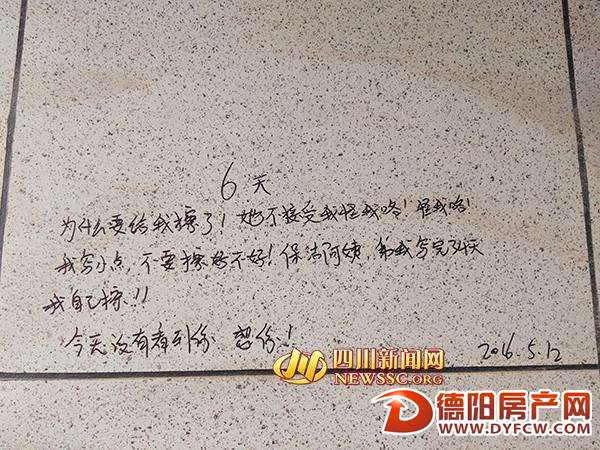 6天
为什么要给我擦了！她不接受我怪我咯！怪我咯！
我写小点，不要擦好不好！保洁阿姨，等我写完34天
我自己擦！！
今天没有看到你 想你！
2016.5.12
四川新闻网
NEWSSC.ORG
德阳房产网
WWW.DYFCW.COM